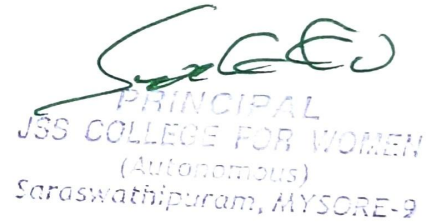 PRINCIPAL
JSS COLLEGE FOR WOMEN
(Autonomous)
Saraswathipuram, MYSORE-9